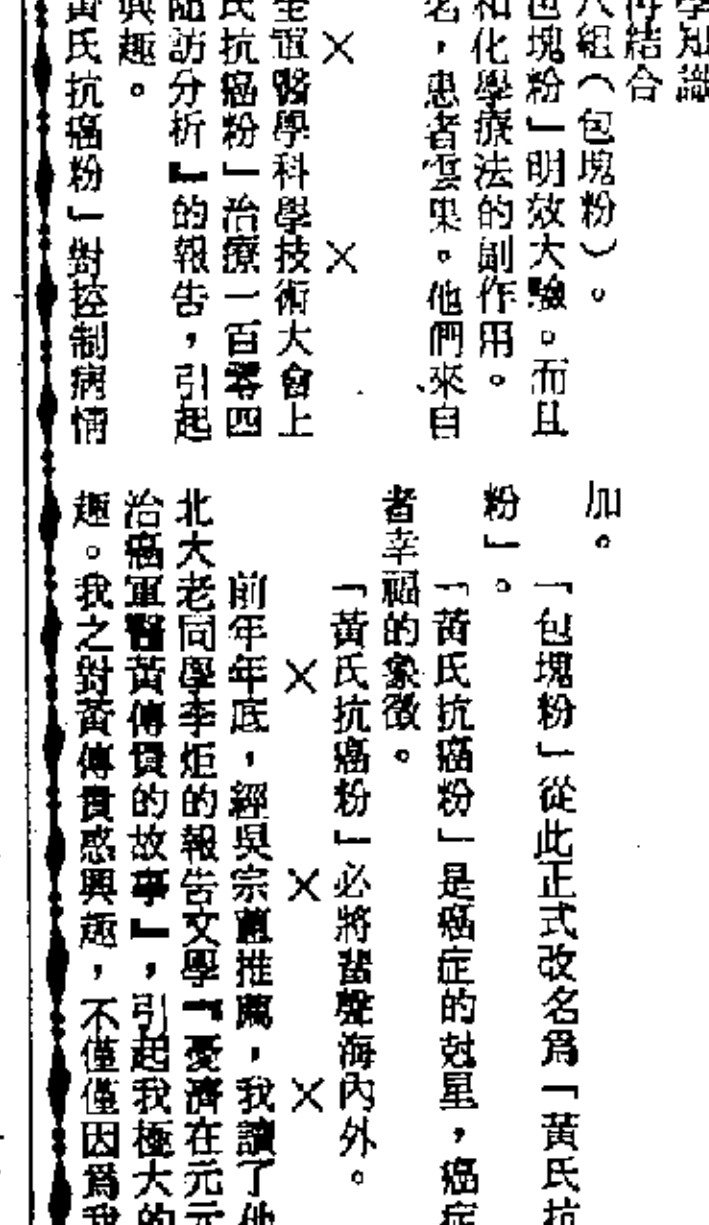 學知識
再結合
八組（包塊粉）。
包塊粉」明效大驗。而且
和化學療法的副作用。
名，患者雲集。他們來自
× ×
全軍醫學科學技術大會上
氏抗癌粉」治療一百零四
隨訪分析』的報告，引起
興趣。
黃氏抗癌粉」對控制病情
加。
「包塊粉」從此正式改名爲「黃氏抗
粉」。
「黃氏抗癌粉」是癌症的尅星，癌症
者幸福的象徵。
「黃氏抗癌粉」必將蜚聲海內外。
× × ×
前年年底，經吳宗蕙推薦，我讀了他
北大老同學李炬的報告文學『憂濟在元元
治癌軍醫黃傳貴的故事』，引起我極大的
趣。我之對黃傳貴感興趣，不僅僅因爲我